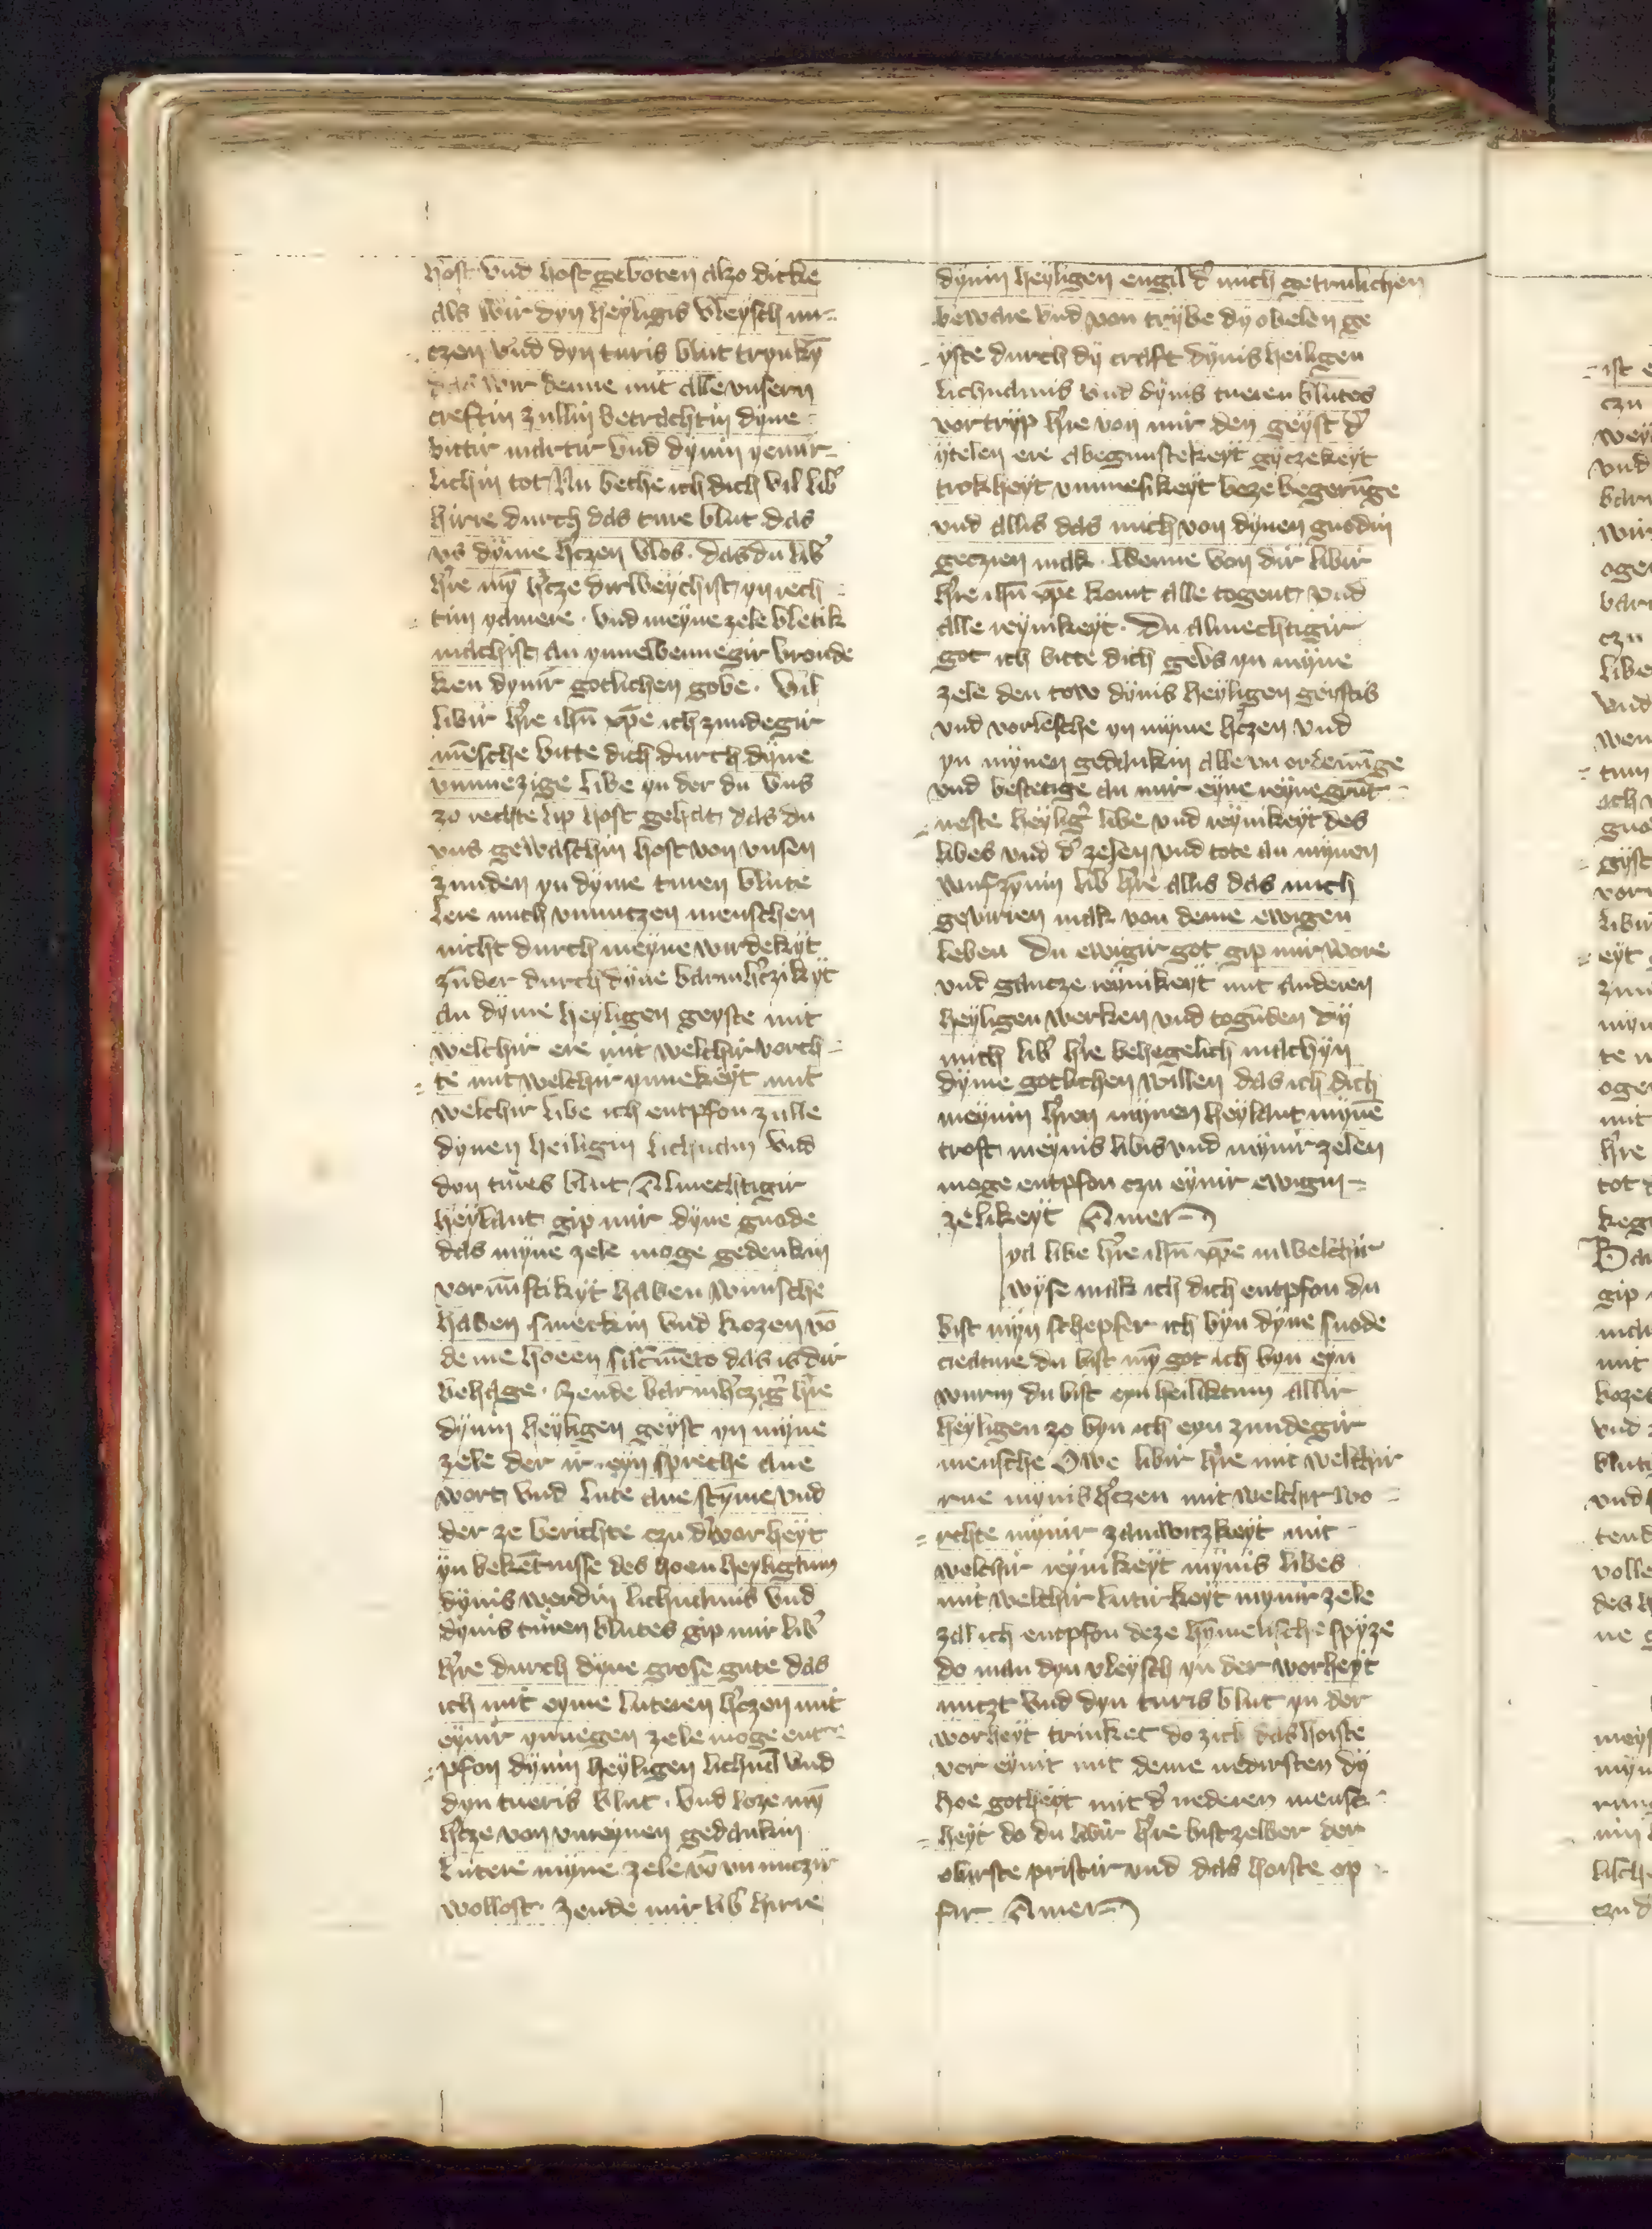 host vnd host geboten alzo dicke
als wir dyn heyligis vleysch nu-
czen vnd dyn turis blut trynkȳ
das wir denne mit alle vnsern
creftin zullin betrachtin dyne
bittir martir vnd dynin yemir-
lichin tot Nu bethe ich dich vil lib᷑
hirre durch das ture blut das
vs dyme h᷑czen vlos · das du lib᷑
h᷑re mȳ h᷑cze dirweychist yn rech
tin yamere · vnd meyne zele vletik
machist an ynnewennegir vronde
ken dynir gotlichen gobe · Vil
libir h᷑re ihū xp̄e ich zundegir
mēsche bitte dich durch dyne
vnmezige libe yn der du vns
zo rechte lip host gehat das du
vns gewaschin host von vnsen
zunden yn dyme turen blute
lere mich vnnutzen menschen
nicht durch meyne wirdekyt
zūder durch dyne barmh᷑czikyt
an dyme heyligen geyste mit
welchir ere mit welchir vorch-
te mit welchir ynnekeyt mit
welchir libe ich entpfon zulle
dynen heiligin lichnam vnd
dyn tures blut Almechtigir
heylant gip mir dyne gnode
das myne zele moge gedenkin
vornūftikyt haben wunsche
haben smeckin vnd kozen vō
deme hoeen sac̄mēto das is dir
behage · Zende barmh᷑czig᷑ h᷑re
dynin heyligen geyst yn myne
zele der ir eyn spreche ane
wort vnd lute ane stȳme vnd
der ze berichte czu d᷑ worheyt
yn bekētnisse des hoen heyligtum
dynis werdin lichnamis vnd
dynis turen blutes gip mir lib᷑
h᷑re durch dyne grose gute das
ich mit eyme luteren h᷑czen mit
eynir ynnegen zele moge ent-
pfon dynin heyligen lichnā vnd
dyn tueris blut · vnd loze mȳ
h᷑cze von vnreynen gedankin
lutere myne zele vō vnnuczir
wollost · Zende mir lib᷑ hirre
dynin heyligen engil d᷑ mich getrulichen
beware vnd von trybe dy obelen ge
yste durch dy craft dynis heiligen
lichnamis vnd dynis tueren blutes
vortryp h᷑re von mir den geyst d᷑
ytelen ere abegunstekeyt gyczekeyt
trokheyt vnmesikeyt boze begerūge
vnd allis das mich von dynen gnodin
geczien mak · Wenne von dir libir
h᷑re ihū xp̄e komt alle togent vnd
alle reynikeyt · Du almechtigir
got ich bitte dich gebs yn myne
zele den tow dynis heyligen geistis
vnd vorlesche yn myme h᷑czen vnd
yn mynen gedankin alle vnordenūge
vnd bestetige an mir eyne reyne grūt
neste heylig᷑ libe vnd reynikeyt des
libes vnd d᷑ zelen vnd tote an mynen
lib᷑ h᷑re allis das mich
gevirren mak von deme ewigen
leben Du ewigir got gip mir wore
vnd gantze reynikeyt mit anderen
heyligen werken vnd togūden dy
mich lib᷑ h᷑re behegelich machyn
dyme gotlichen willen das ich dich
meynin h᷑ren mynen heylant mynē
trost meynis libis vnd mynir zelen
moge entpfon czu eynir ewigin
zelikeyt Amen
ya libe h᷑re ihū xp̄e in welchir
wyse mak ich dich entpfon du
bist myn schepfer ich byn dyne snode
creature du bist mȳ got ich byn eyn
wurm du bist eyn heiliktum allir
heyligen zo byn ich eyn zundegir
mensche Owe libir h᷑re mit welchir
rue mynis h᷑czen mit welchir vo
rchte mynir zamwitzkeyt mit
welchir reynikeyt mynis libes
mit welchir lutirkeyt mynir zele
zal ich entpfon deze hymelische spyze
do man dyn vleysch yn der worheyt
nutzt vnd dyn turis blut yn der
worheyt trinket do zich das hoiste
vor eynit mit deme nedirsten dy
hoe gotheyt mit d᷑ nederen mensc
heyt do du libir h᷑re bist zelber der
obirste pristir vnd das hoiste op
fir Amen